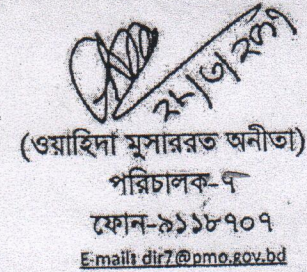 ২৮/৩/২০১৭
(ওয়াহিদা মুসাররত অনীতা)
পরিচালক-৭
ফোন-৯১১৮৭০৭
E-mail: dir7@pmo.gov.bd